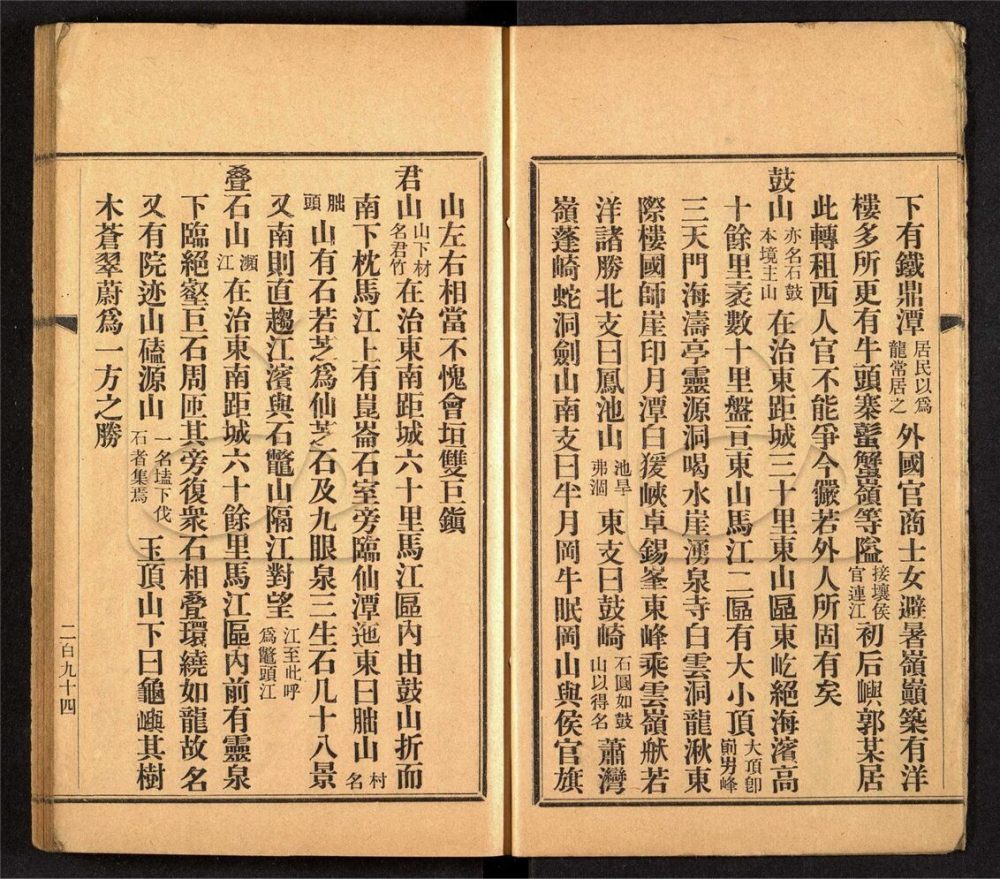 下有鐵鼎潭居民以爲龍常居之外國官商士女避暑嶺巔築有洋
樓多所更有牛頭寨蟚蟹嶺等隘接壤侯官連江初后嶼郭某居
此轉租西人官不能爭今儼若外人所固有矣
鼓山亦名石鼓本境主山在治東距城三十里東山區東屹絕海濱高
十餘里袤數十里盤亘東山馬江二區有大小頂大頂卽屴崱峰
三天門海濤亭靈源洞喝水崖湧泉寺白雲洞龍湫東
際樓國師崖印月潭白猨峽卓錫峯東峰乘雲嶺猷若
洋諸勝北支曰鳳池山池旱弗涸東支曰鼓崎石圓如鼓山以得名蕭灣
嶺蓬崎蛇洞劍山南支曰半月岡牛眠岡山與侯官旗
山左右相當不愧會垣雙巨鎭
君山山下材名君竹在治東南距城六十里馬江區內由鼓山折而
南下枕馬江上有崑崙石室旁臨仙潭迤東曰朏山村名
朏頭山有石若芝爲仙芝石及九眼泉三生石凡十八景
又南則直趨江濱與石鼈山隔江對望江至此呼爲鼈頭江
疊石山瀕江在治東南距城六十餘里馬江區內前有靈泉
下臨絕壑巨石周匝其旁復衆石相疊環繞如龍故名
又有院迹山磕源山一名壒下伐石者集焉玉頂山下曰龜嶼其樹
木蒼翠蔚爲一方之勝
二百九十四